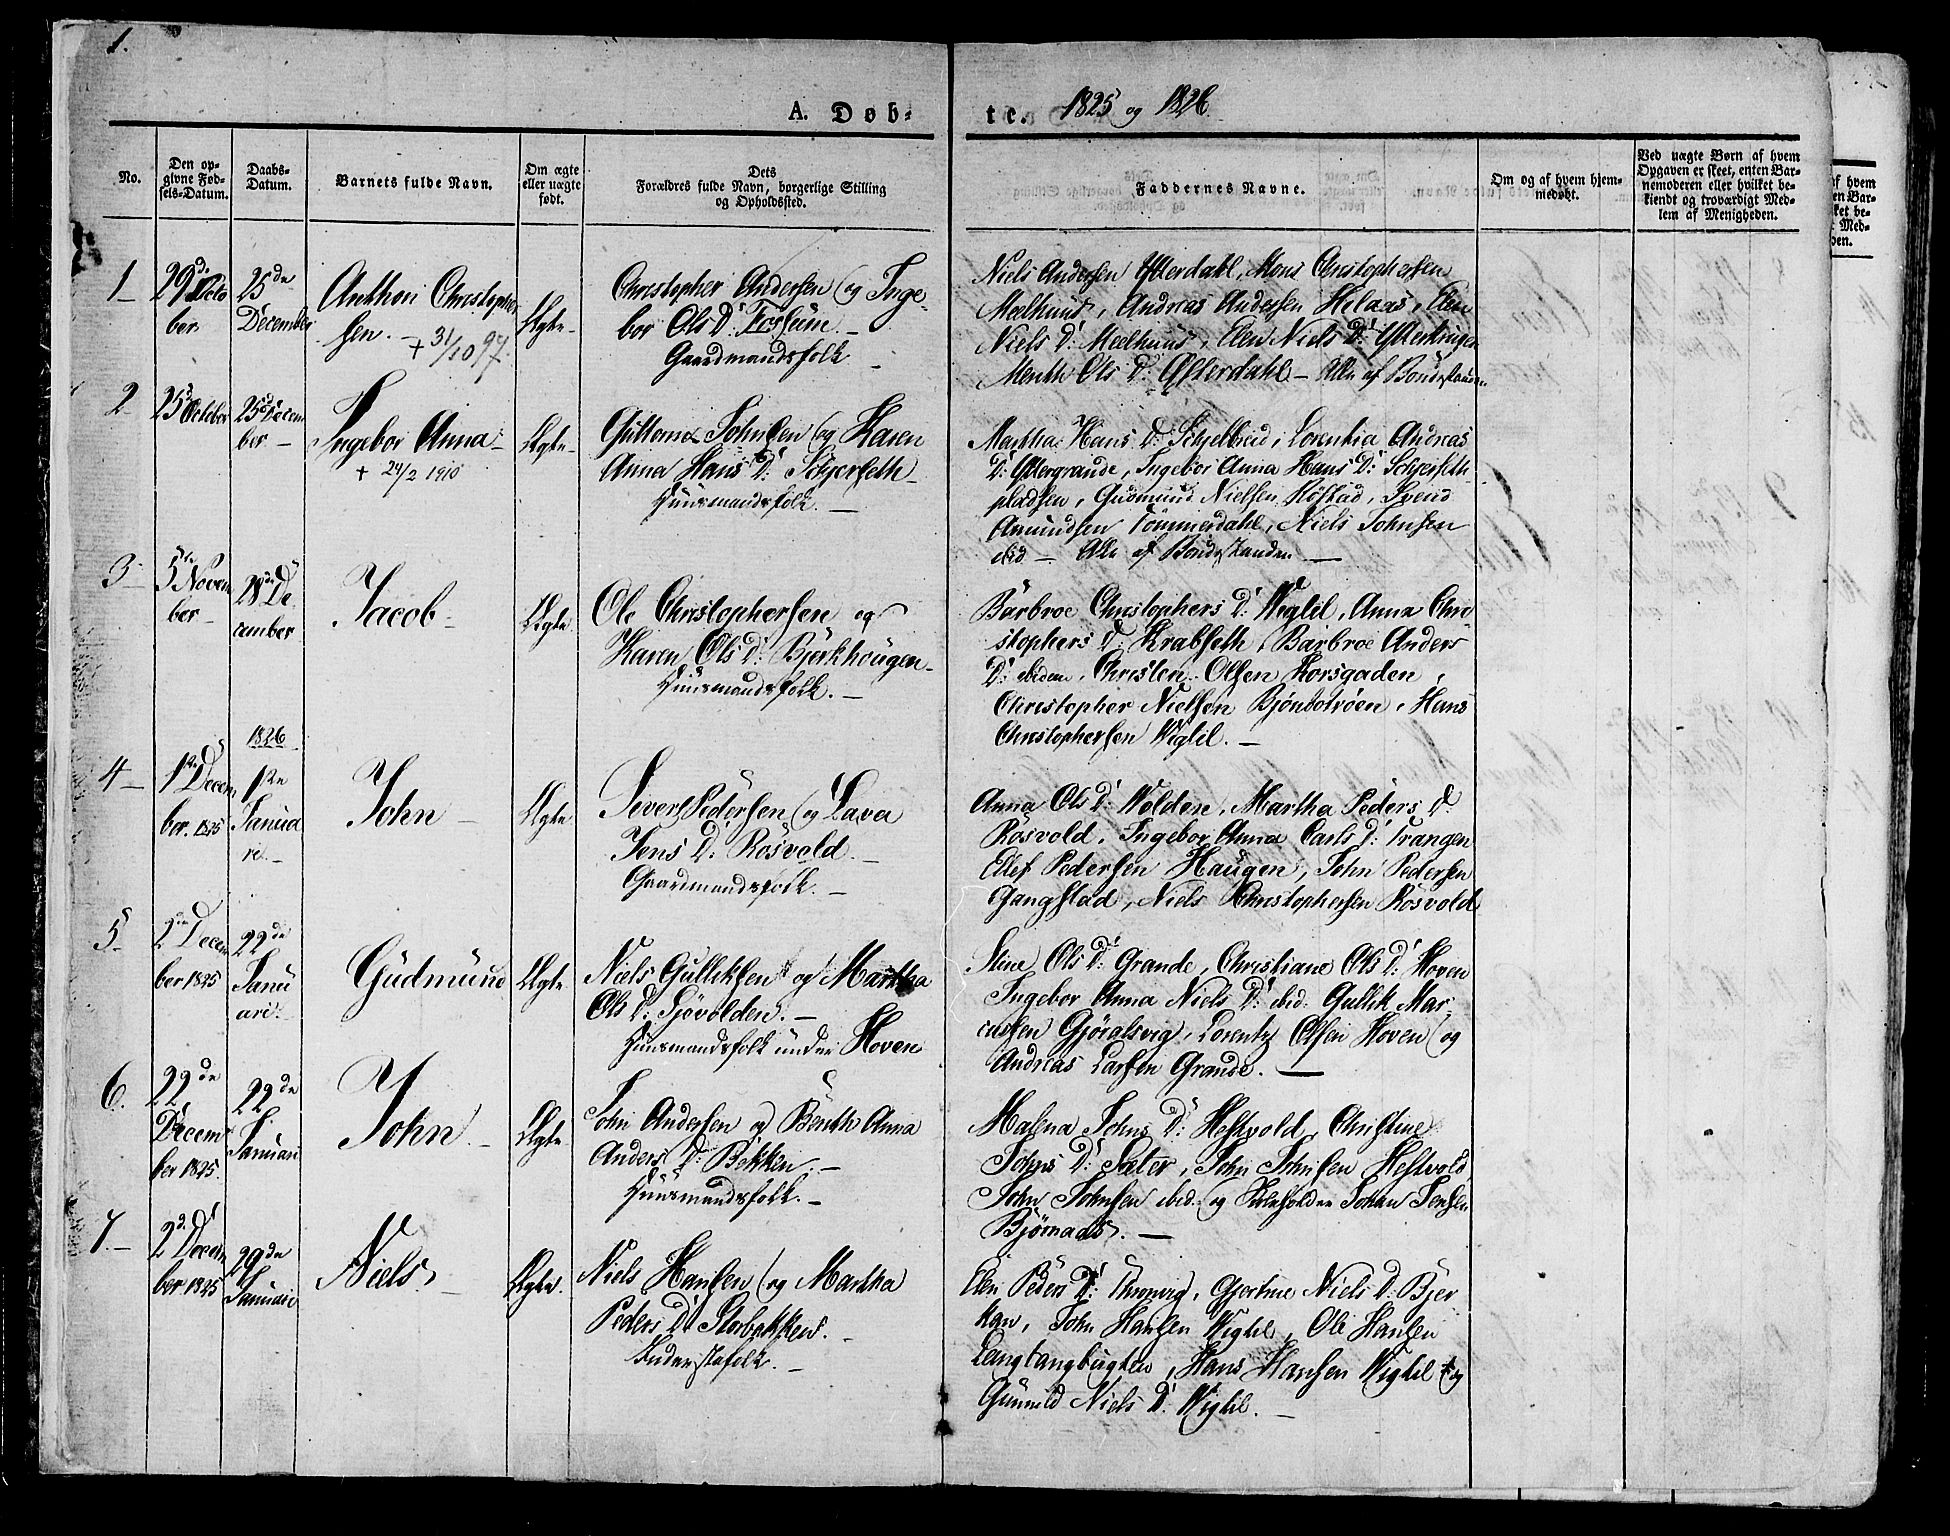 1.
A. Døb-
te. 1825 og 1826.
No.
Den op-
givne Fød-
sels-Datum.
Daabs-
Datum.
Barnets fulde Navn.
Om ægte
eller uægte
født.
Dets
Forældres fulde Navn, borgerlige Stilling
og Opholdssted.
Faddernes Navne.
Om og af hvem hjem-
medøbt.
Ved uægte Børn af hvem
Opgaven er skeet, enten Bar-
nemoderen eller hvilket be-
kiendt og troværdigt Med-
lem af Menigheden.
1
29d Octo
ber
25de
December
Anthon Christopher
sen.
+ 31/10 97.
Ægte
Christopher Andersen og Inge
bor Ols D: Fossum
Gaardmandsfolk
Niels Andersen Ysterdahl, Mons Christophersen
Meelhuus, Andreas Andersen Helaas, Elen
Niels D: Meelhuus, Elen Niels D:
Ols D: Ysterdahl - Alle af Bondestanden
2
25 October
25d Decem
ber
Ingebor Anna
+ 24/2 1910
Ægte
Guttorm Johnsen og Karen
Anna Hans D: Schjerseth
Huusmandsfolk.
Martha Hans D: Schjelbreid, Lorentia Andreas
D: Ystergrande, Ingebor Anna Hans D: Schjerseth
pladsen, Gudmund Nielsen Høstad, Svend
Amundsen Tømmerdahl, Niels Johnsen
ibid - Alle af Bondestanden
3
5te Novem
ber
28de De
cember
Jacob
Ægte
Ole Christophersen og
Karen Ols D: Bjerkhougen
Huusmandsfolk.
Barbroe Christophers D: Wiglil, Anna Chri
stophers D Krabseth, Barbroe Anders
D: ibidem, Christen Olsen Korsgaden,
Christopher Nielsen, Hans
Christophersen Wiglil.
4
1ste Decem
ber. 1825
1826
1ste
Janua
ri.
John
Ægte
Sivert Pedersen og Lava
Jens D: Rosvold.
Gaardmandsfolk.
Anna Ols D: Wolden, Martha Peders D
Rosvold, Ingebor Anna Carls D: Trangen
Elef Pedersen Haugen, John Pedersen
Gangstad, Niels Christophersen Rosvold
5
2den Decem
ber 1825
22de
Janu
ari.
Gudmund
Ægte
Niels Gulliksen og Martha
Ols D: Sjøvolden.
Huusmandsfolk under Hoven
Stine Ols D: Grande, Christiane Ols D: Hoven
Ingebor Anna Niels D: ibid. Gullik Mar
cussen Gjøralsvig, Lorentz Olsen Hoven og
Andreas Larsen Grande.
6.
22de
Decem
ber 1825.
22de
Januari
John
Ægte
John Andersen og Benth Anna
Anders D: Bekken.
Huusmandsfolk.
Malena Johns D: Hestvold, Christine
Johns D: Sæter, John Johnsen Hestvold
John Johnsen ibid. og Johan Jensen
Bjørnaas.
7.
2d. Decem
ber 1825
29de
Januari
Niels
Ægte.
Niels Hansen og Martha
Peders D: Storbekken.
Inderstefolk.
Elen Peders D:, Gjertine Niels D: Bjer
kan, John Hansen Wiglil, Ole Hansen
Langtangbugten, Hans Hansen Wiglil og
Gunnild Niels D: Wiglil.